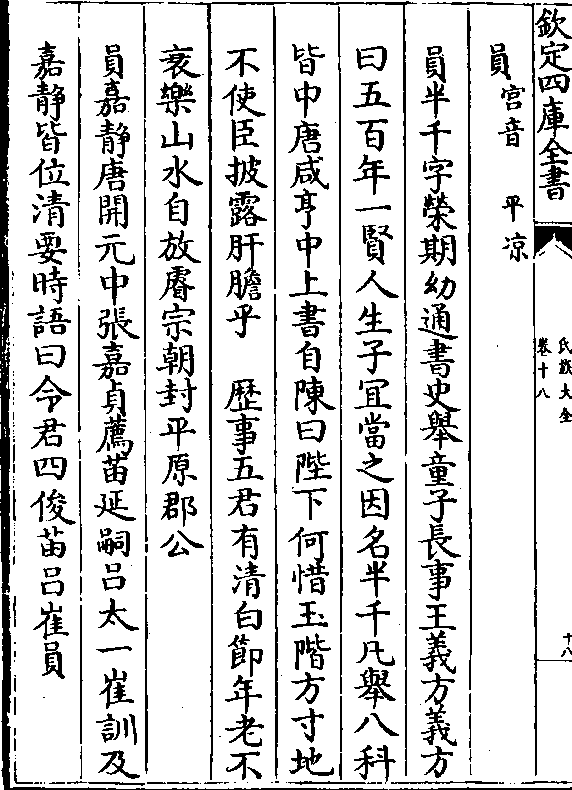 欽定四庫全書
氏族大全
卷十八
十八
員 宫音 平凉
員半千字榮期幼通書史舉童子長事王義方義方
曰五百年一賢人生子宜當之因名半千凡舉八科
皆中唐咸亨中上書自陳曰陛下何惜玉階方寸地
不使臣披露肝膽乎 歴事五君有清白節年老不
衰樂山水自放睿宗朝封平原郡公
員嘉靜唐開元中張嘉貞薦苖延嗣吕太一崔訓及
嘉静皆位清要時語曰令君四俊苖吕崔員